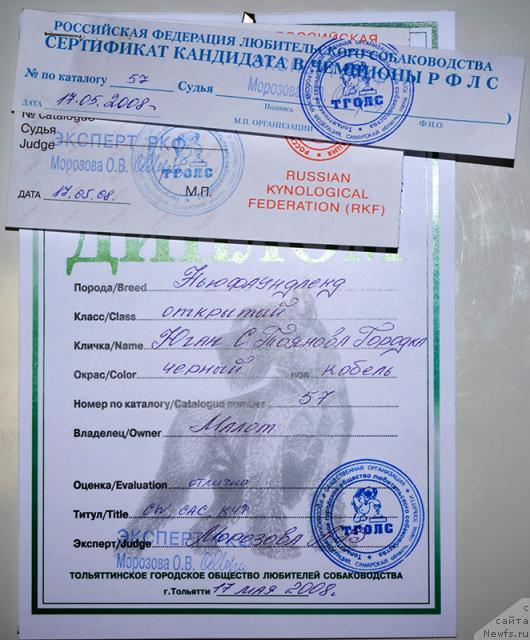 РОССИЙСКАЯ
РОССИЙСКАЯ ФЕДЕРАЦИЯ ЛЮБИТЕЛЬСКОГО СОБАКОВОДСТВА
СЕРТИФИКАТ КАНДИДАТА В ЧЕМПИОНЫ Р Ф Л С
№ по каталогу 57 Судья Морозова
ДАТА 17.05.2008г Подпись
М.П. ОРГАНИЗАЦИИ Ф.И.О. )
ТГОЛС
№ Catalogue
Судья
Judge
ЭКСПЕРТ РКФ
Морозова О.В.
ТГОЛС
ДАТА 17.05.08. М.П.
RUSSIAN
KYNOLOGICAL
FEDERATION (RKF)
ДИПЛОМ
Порода/Breed Ньюфаундленд
Класс/Class открытый
Кличка/Name Юган С Тоянова Городка
Окрас/Color черный пол кобель
Номер по каталогу/Catalogue number 57
Владелец/Owner Малот
Оценка/Evaluation отлично
Титул/Title CW, CAC, КЧФ
Эксперт/Judge Морозова
ЭКСПЕРТ
Морозова О.В.
ТГОЛС
ТОЛЬЯТТИНСКОЕ ГОРОДСКОЕ ОБЩЕСТВО ЛЮБИТЕЛЕЙ СОБАКОВОДСТВА
г.Тольятти 17 мая 2008г.
с
сайта
Newfs.ru